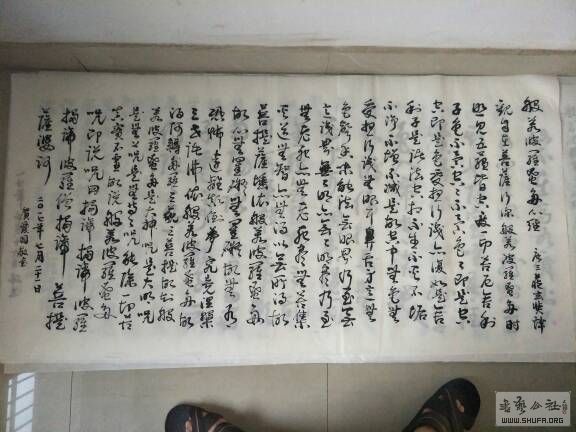 般若波羅蜜多心經
唐三藏玄奘譯
觀自在菩薩行深般若波羅蜜多時
照見五蘊皆空度一切苦厄舍利
子色不異空空不異色色即是空
空即是色受想行識亦復如是舍
利子是諸法空相不生不滅不垢
不淨不增不減是故空中無色無
受想行識無眼耳鼻舌身意無
色聲香味觸法無眼界乃至無
意識界無無明亦無無明盡乃至
無老死亦無老死盡無苦集
滅道無智亦無得以無所得故
菩提薩埵依般若波羅蜜多
故心無罣礙無罣礙故無有
恐怖遠離顛倒夢想究竟涅槃
三世諸佛依般若波羅蜜多故
得阿耨多羅三藐三菩提故知般
若波羅蜜多是大神咒是大明咒
是無上咒是無等等咒能除一切苦
真實不虛故說般若波羅蜜多
咒即說咒曰揭諦揭諦波羅
揭諦波羅僧揭諦菩提
薩婆訶
二〇一七年七月二十日
敬書
書藝公社
WWW.SHUFA.ORG